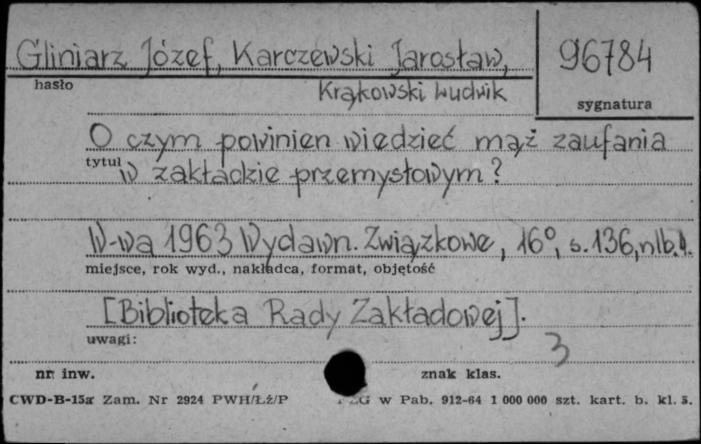 Gliniarz Józef, Karczewski Jarosław, 96784
hasło Krąkowski Ludwik
sygnatura
O czym powinien wiedzieć mąż zaufania
tytuł w zakładzie przemysłowym?
W-wa 1963 Wydawn. Związkowe, 16°, s. 136, nlb. 4.
miejsce, rok wyd., nakładca, format, objętość
[Biblioteka Rady Zakładowej].
uwagi: 3
nr inw. znak klas.
CWD-B-15a Zam. Nr 2924 PWH/Łż/P PZG w Pab. 912-64 1 000 000 szt. kart. b. kl. 5.